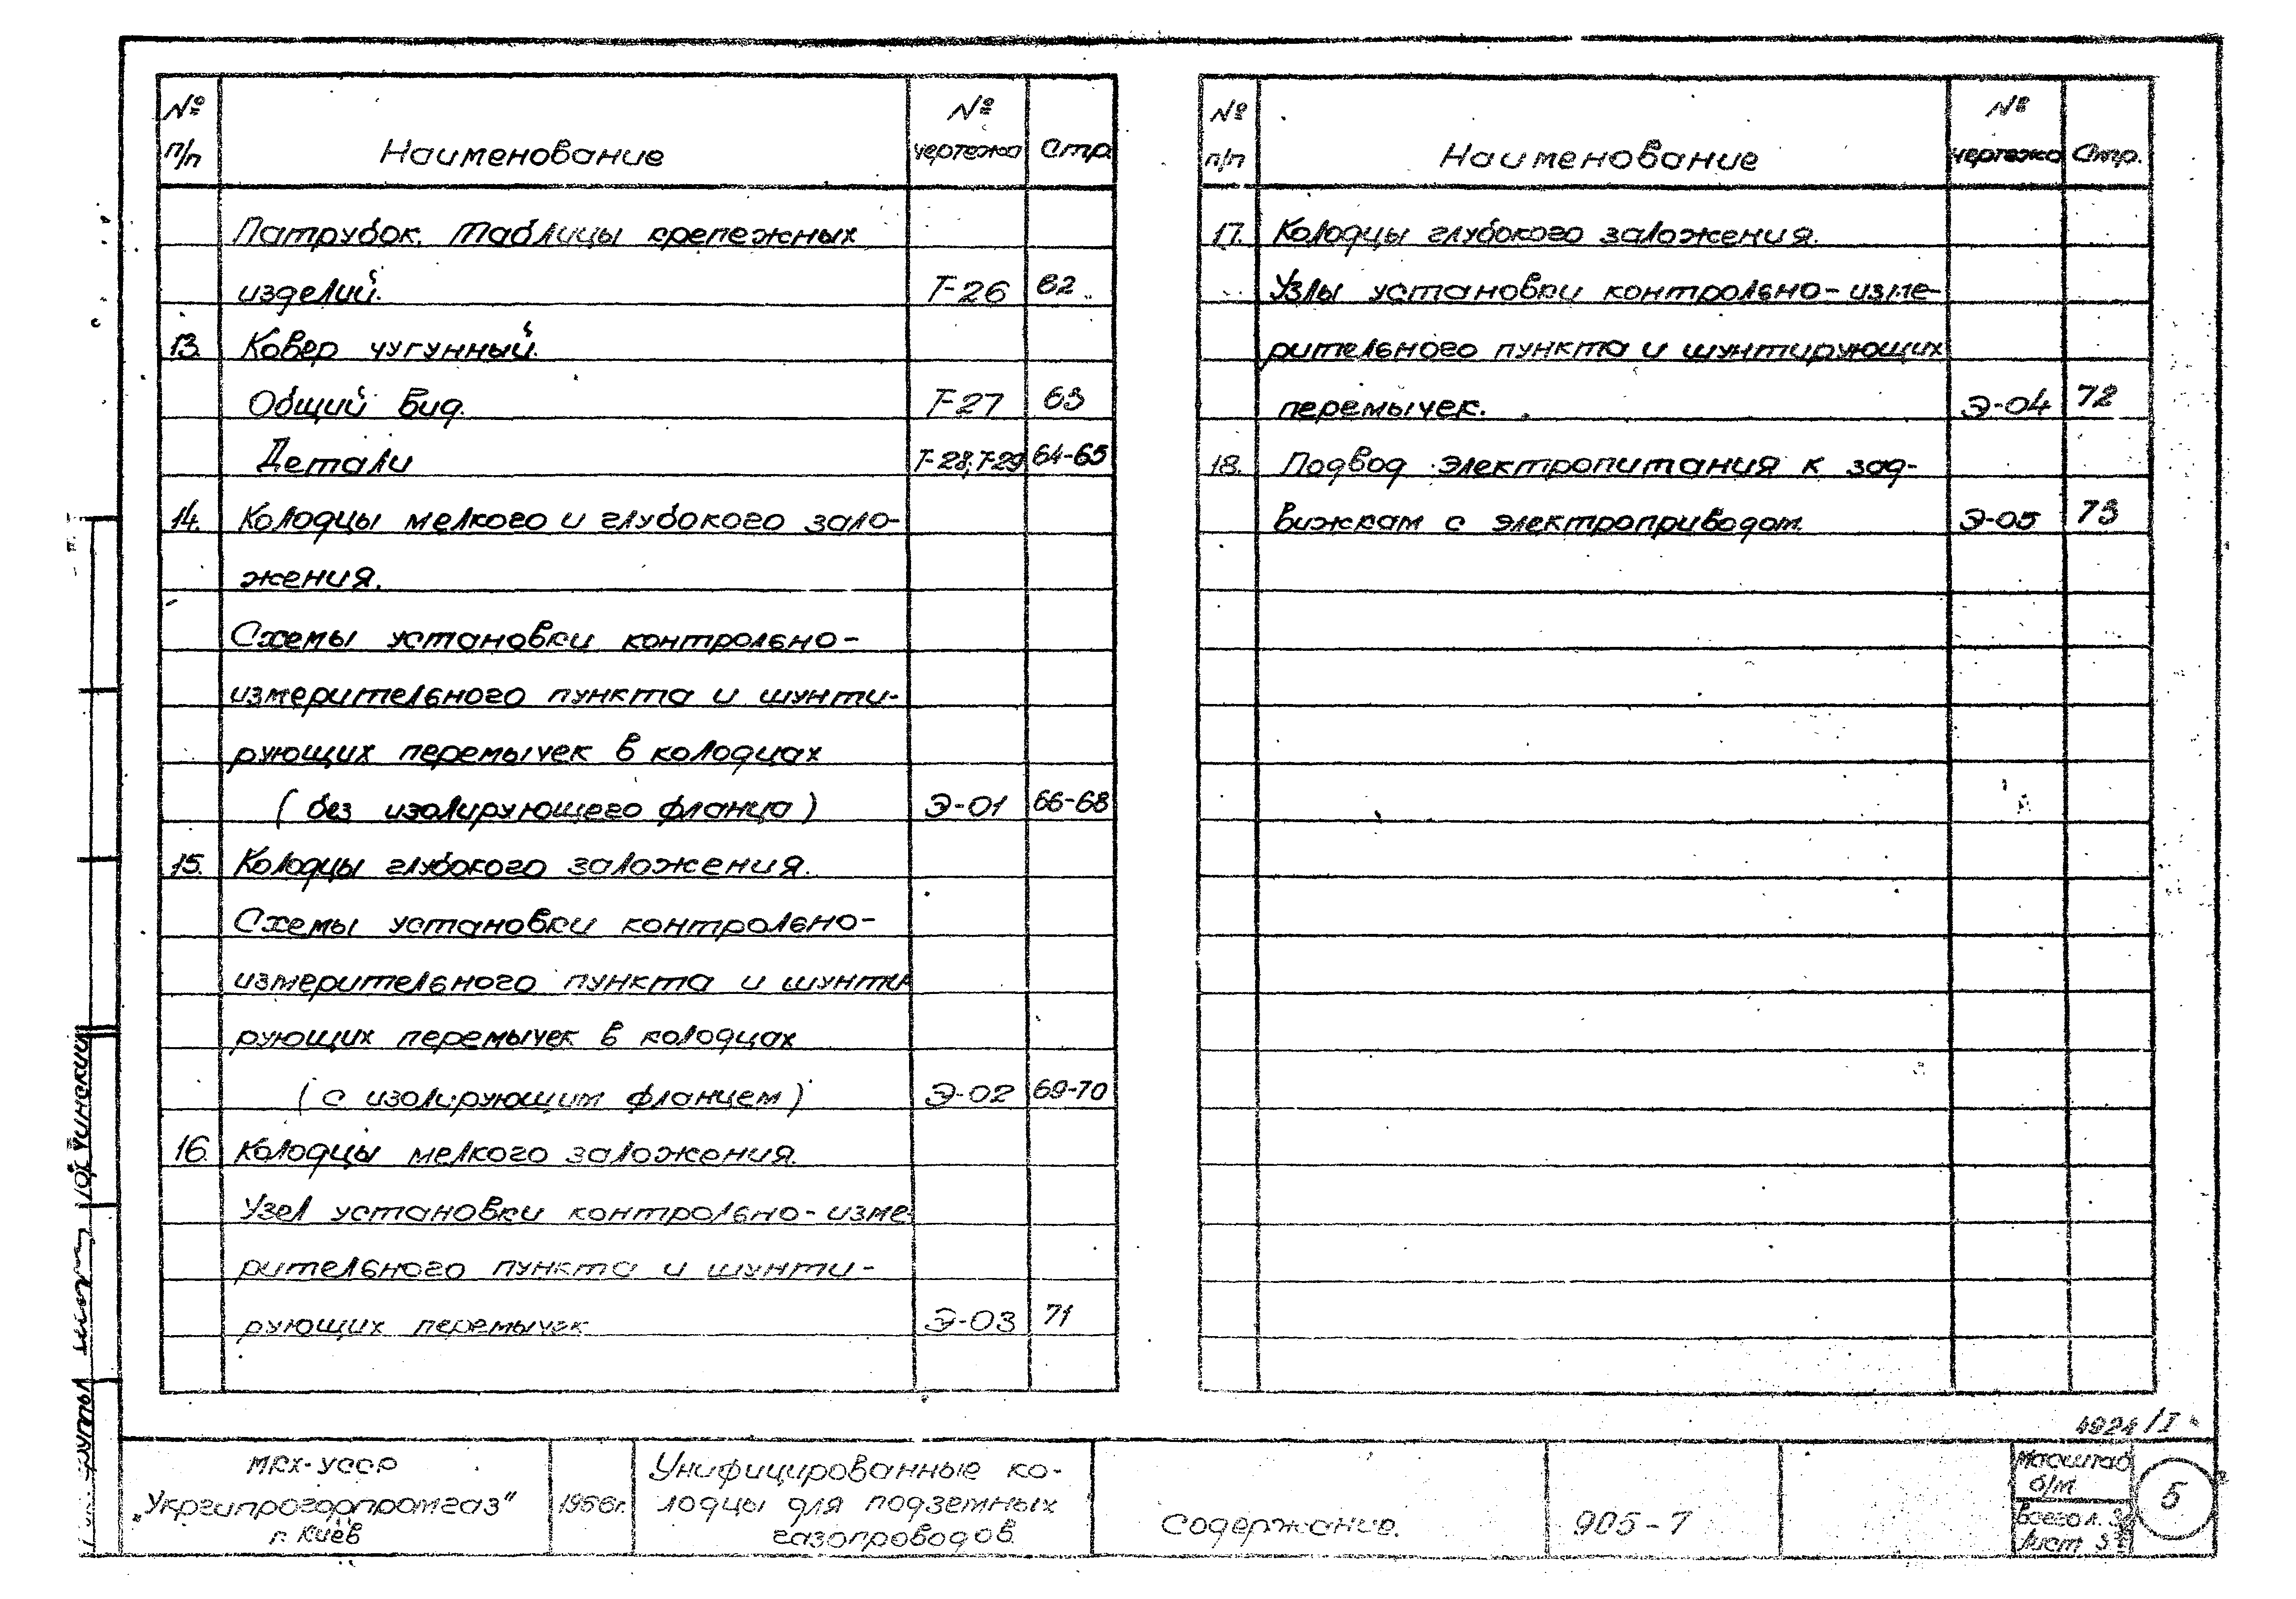 № п/п Наименование № чертежа Стр.
Патрубок. Таблицы крепежных
изделий. Т-26 62
13. Ковер чугунный.
Общий вид. Т-27 63
Детали Т-28; Т-29 64-65
14. Колодцы мелкого и глубокого зало-
жения.
Схемы установки контрольно-
измерительного пункта и шунти-
рующих перемычек в колодцах
(без изолирующего фланца) Э-01 66-68
15. Колодцы глубокого заложения.
Схемы установки контрольно-
измерительного пункта и шунти
рующих перемычек в колодцах
(с изолирующим фланцем) Э-02 69-70
16. Колодцы мелкого заложения.
Узел установки контрольно-изме-
рительного пункта и шунти-
рующих перемычек Э-03 71
№ п/п Наименование № чертежа Стр.
17. Колодцы глубокого заложения.
Узлы установки контрольно-изме-
рительного пункта и шунтирующих
перемычек. Э-04 72
18. Подвод электропитания к зад-
вижкам с электроприводом. Э-05 73
4924/I
МКХ-УССР
„Укргипрогорпромгаз"
г. Киев
1966г.
Унифицированные ко-
лодцы для подземных
газопроводов.
Содержание.
905-7
Масштаб
б/м
Всего л. 3
Лист 3
5